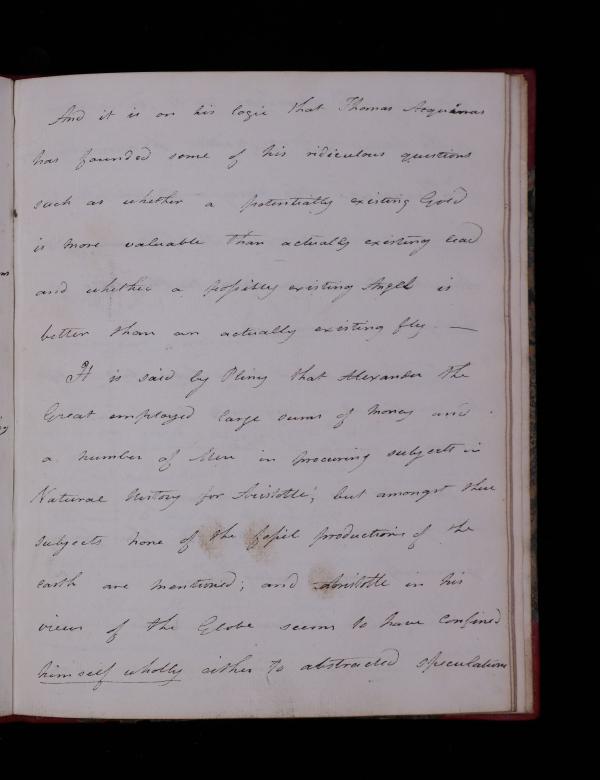 And it is on his logic that Thomas Acquinas
has founded some of his ridiculous questions
such as whether a potentially existing Gold
is more valuable than actually existing lead
and whether a possibly existing Angel is
better than an actually existing fly. —
It is said by Pliny that Alexander the
Great employed large sums of money and
a number of Men in procuring subjects in
Natural History for Aristotle; but amongst these
subjects none of the fossil productions of the
earth are mentioned; and Aristotle in his
views of the Globe seems to have confined
himself wholly either to abstracted speculations